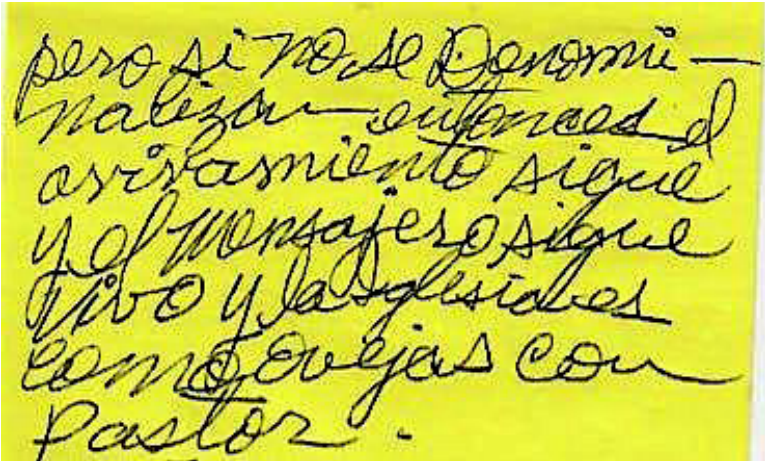 pero si no se Denomi-
nalizan entonces el
avivamiento sigue
y el mensajero sigue
vivo y la Iglesia es
como ovejas con
Pastor.